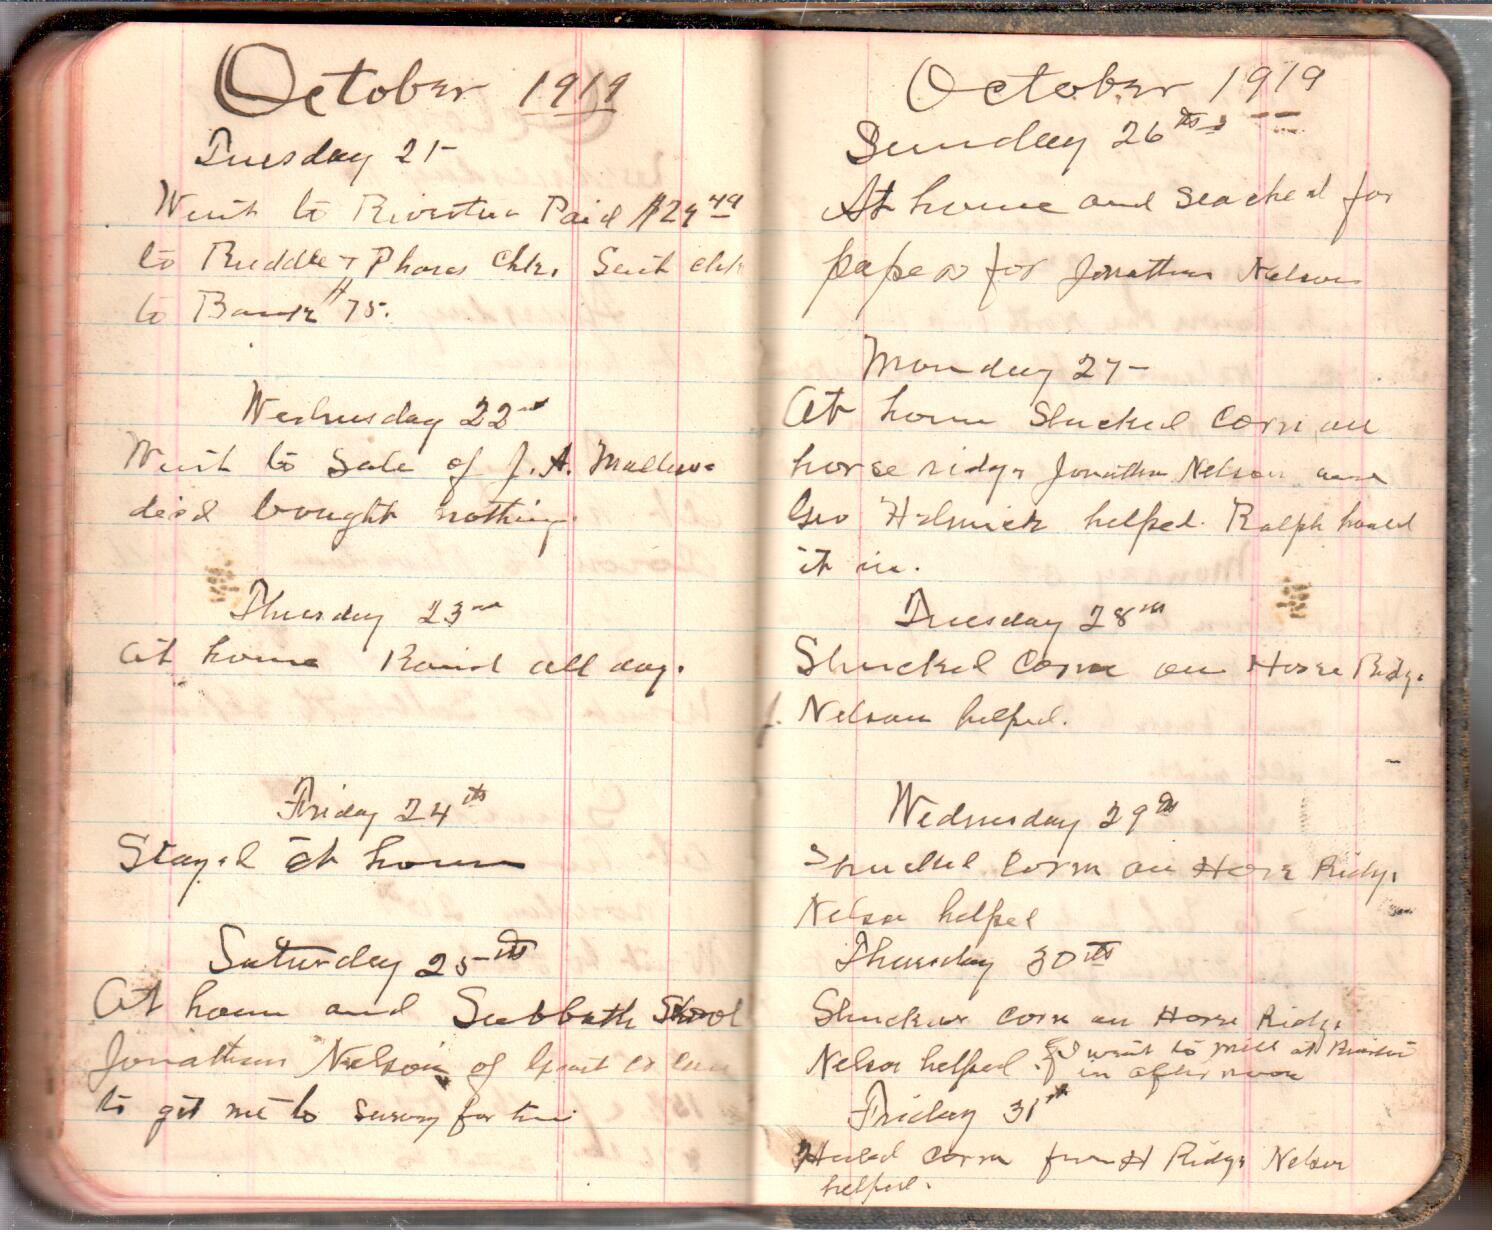 October 1919
Tuesday 21-
Went to Riverton Paid $29 49
to Ruddle & Phares Chk. Sent chk
to Bank $75.
Wednesday 22nd
Went to Sale of J. A.
dec'd bought nothing.
Thursday 23rd
At home Raind all day.
Friday 24th
Stayed at home
Saturday 25th
At home and Sabbath School
Jonathan Nelson of Grant Co came
to get me to survey for him
October 1919
Sunday 26th
At home and Seached for
papers for Jonathan Nelson
Monday 27-
At home Shucked Corn on
horse ridge Jonathan Nelson and
Geo Helmick helped. Ralph hauled
it in.
Tuesday 28th
Shucked Corn on Horse Ridge
Nelson helped.
Wednesday 29th
Shucked Corn on Horse Ridge
Nelson helped
Thursday 30th
Shucked corn on Horse Ridge
Nelson helped. I went to mill at Riverton
in afternoon
Friday 31st
Hauled corn from H Ridge Nelson
helped.